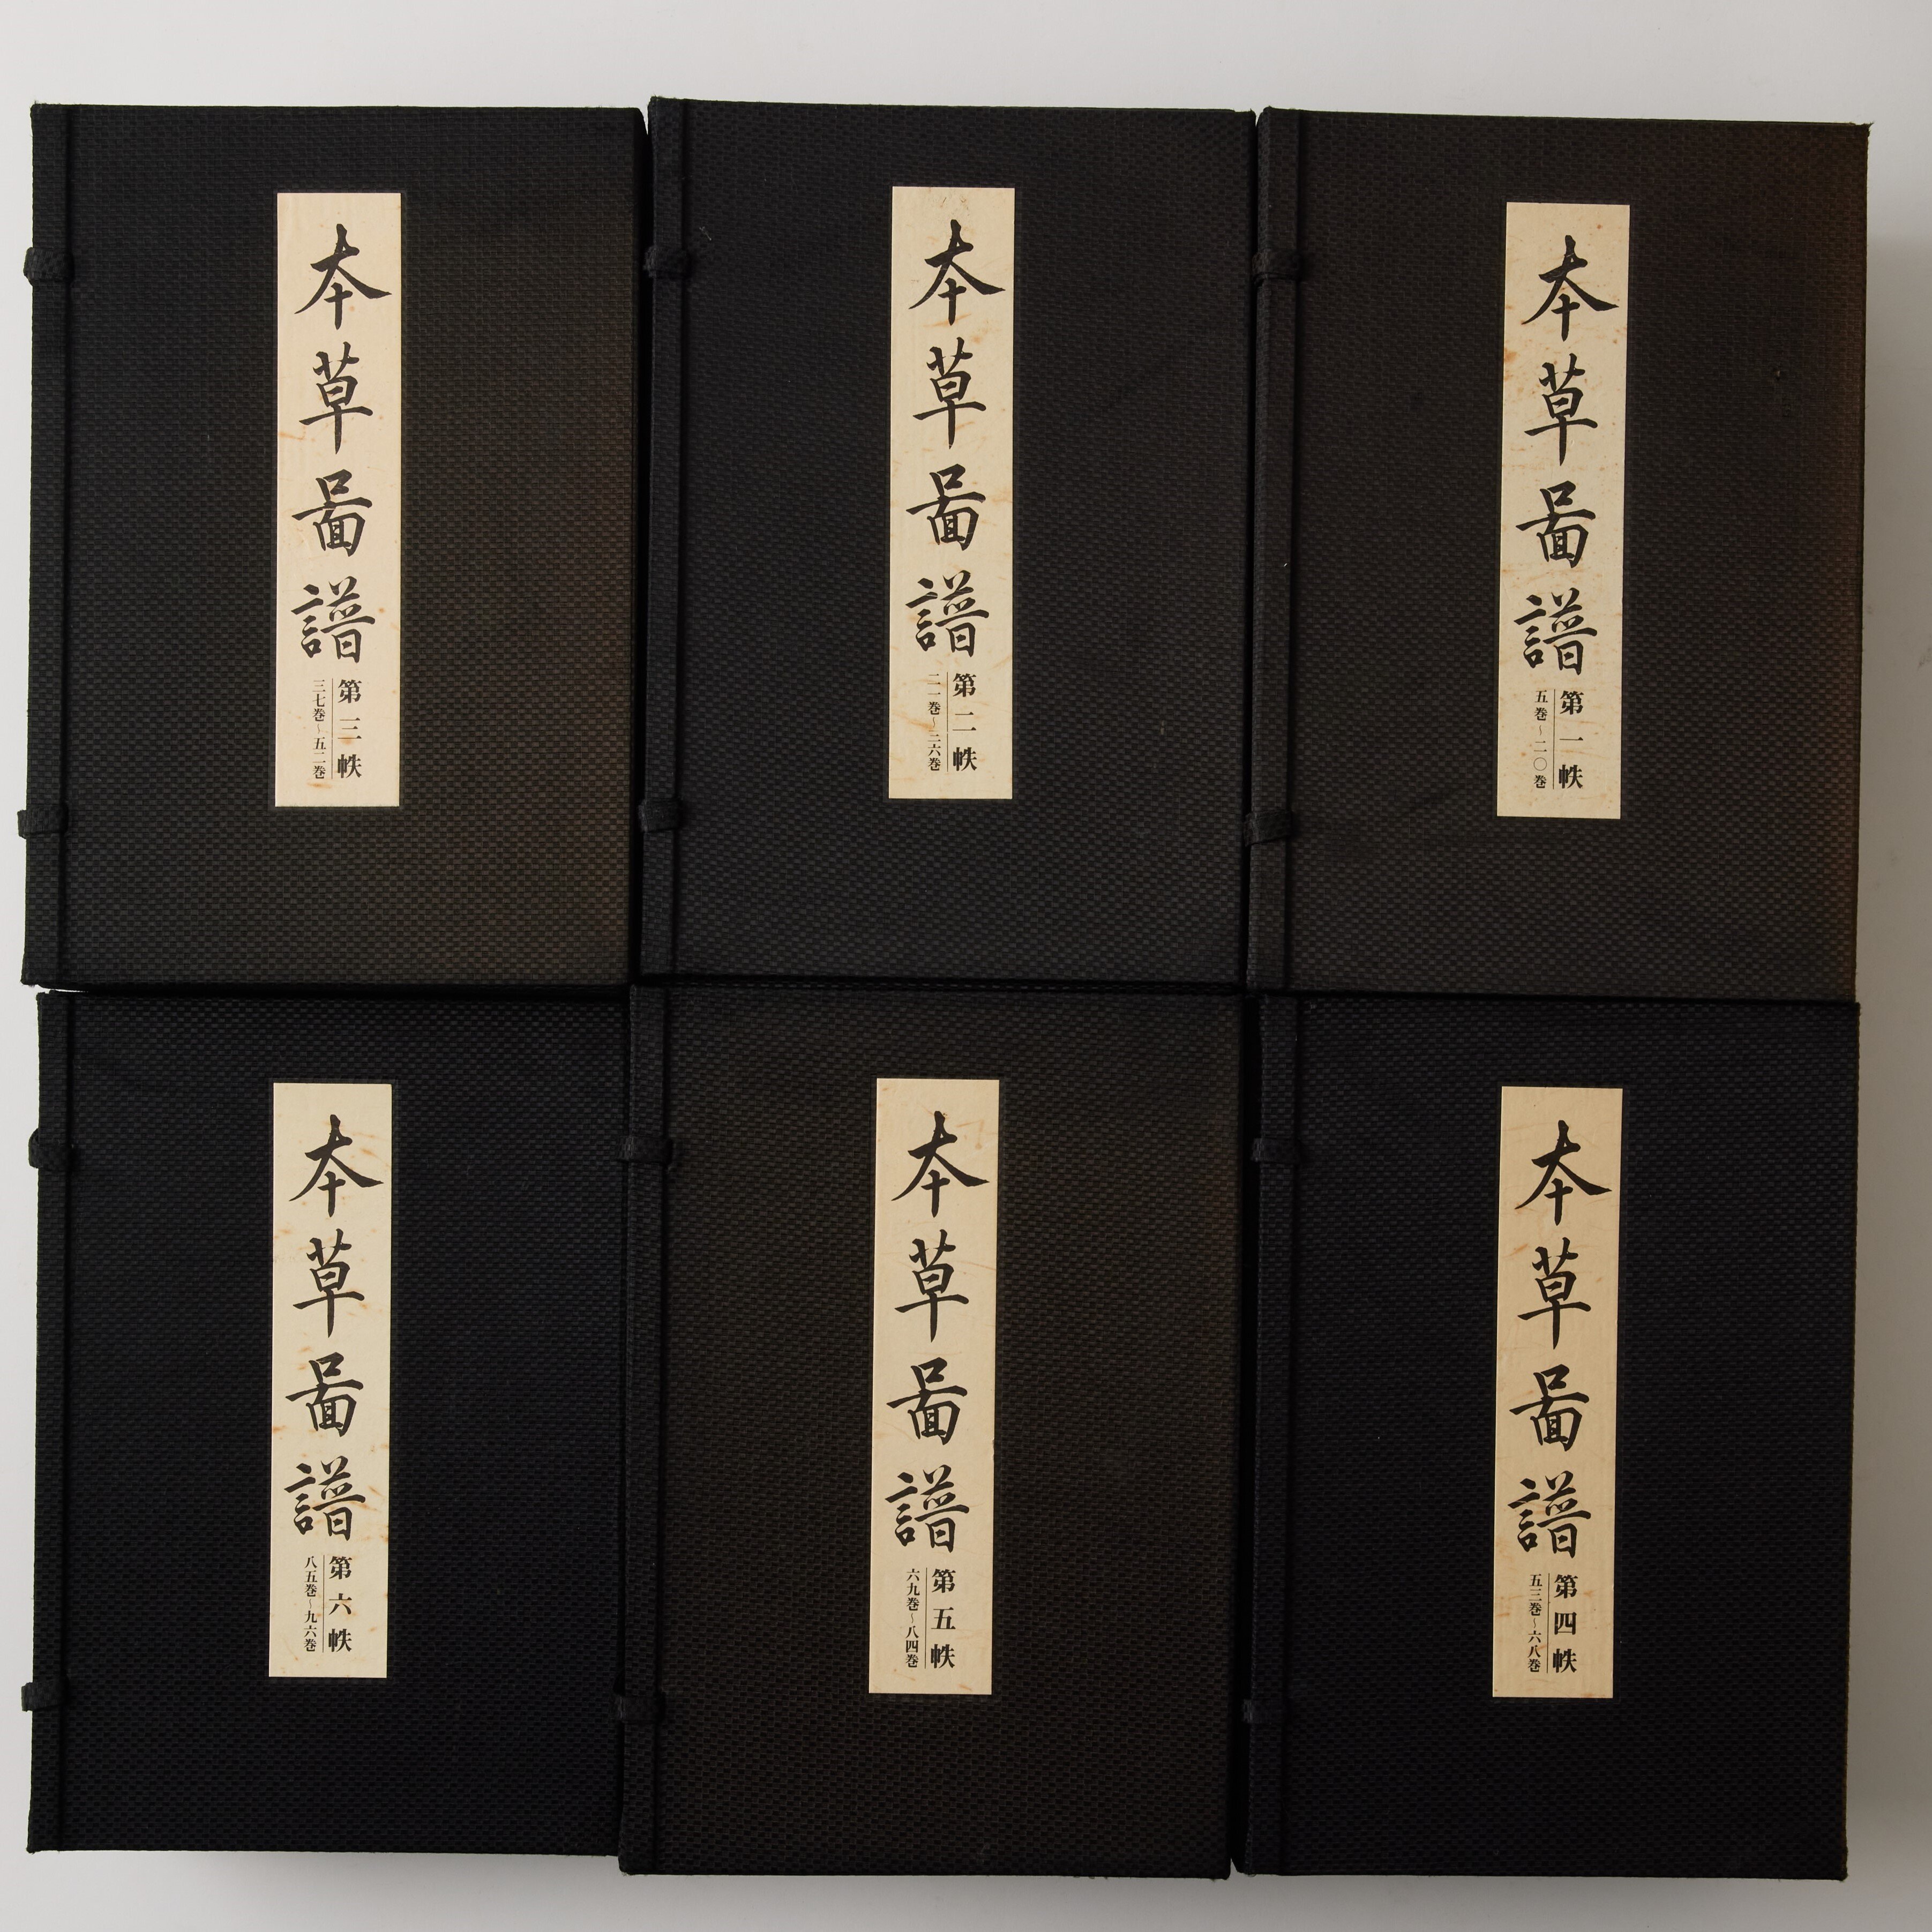 本草啚譜
第一帙
五巻~二〇巻
本草啚譜
第二帙
二一巻~三六巻
本草啚譜
第三帙
三七巻~五二巻
本草啚譜
第四帙
五三巻~六八巻
本草啚譜
第五帙
六九巻~八四巻
本草啚譜
第六帙
八五巻~九六巻